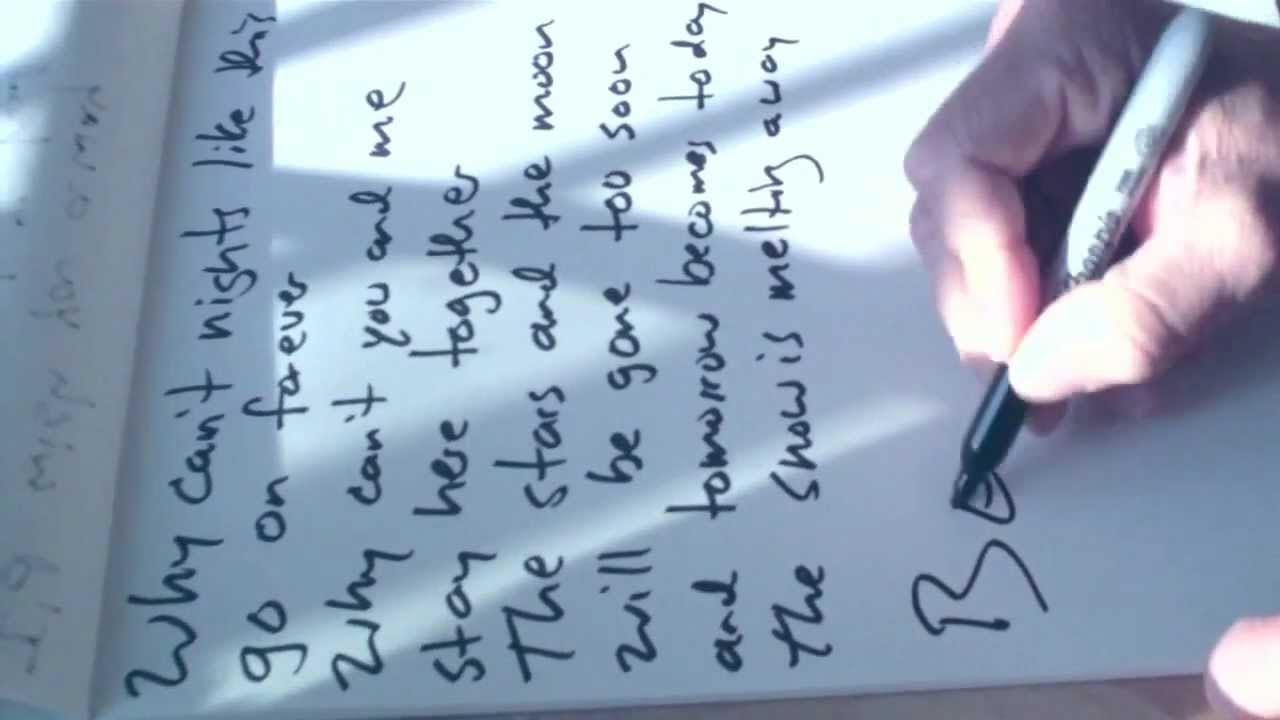 Why can't nights like this
go on forever
Why can't you and me
stay here together
The stars and the moon
will be gone too soon
and tomorrow becomes today
the snow is meltig away